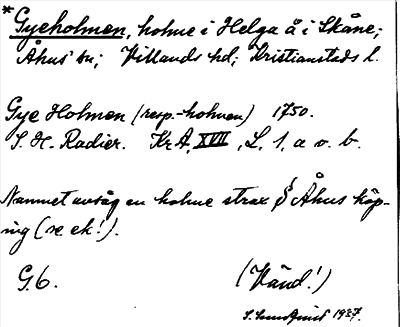 *Gyeholmen, holme i Helga å i Skåne;
Åhus sn; Villands hd; Kristianstads l.
Gye Holmen (resp. -holmen) 1750.
S. H. Radier. KrA, XVII, L, 1, a o. b.
Namnet avsåg en holme strax S Åhus köp-
ing (se ek!).
G. 6.
(Vänd!)
S. Sundquist 1927.